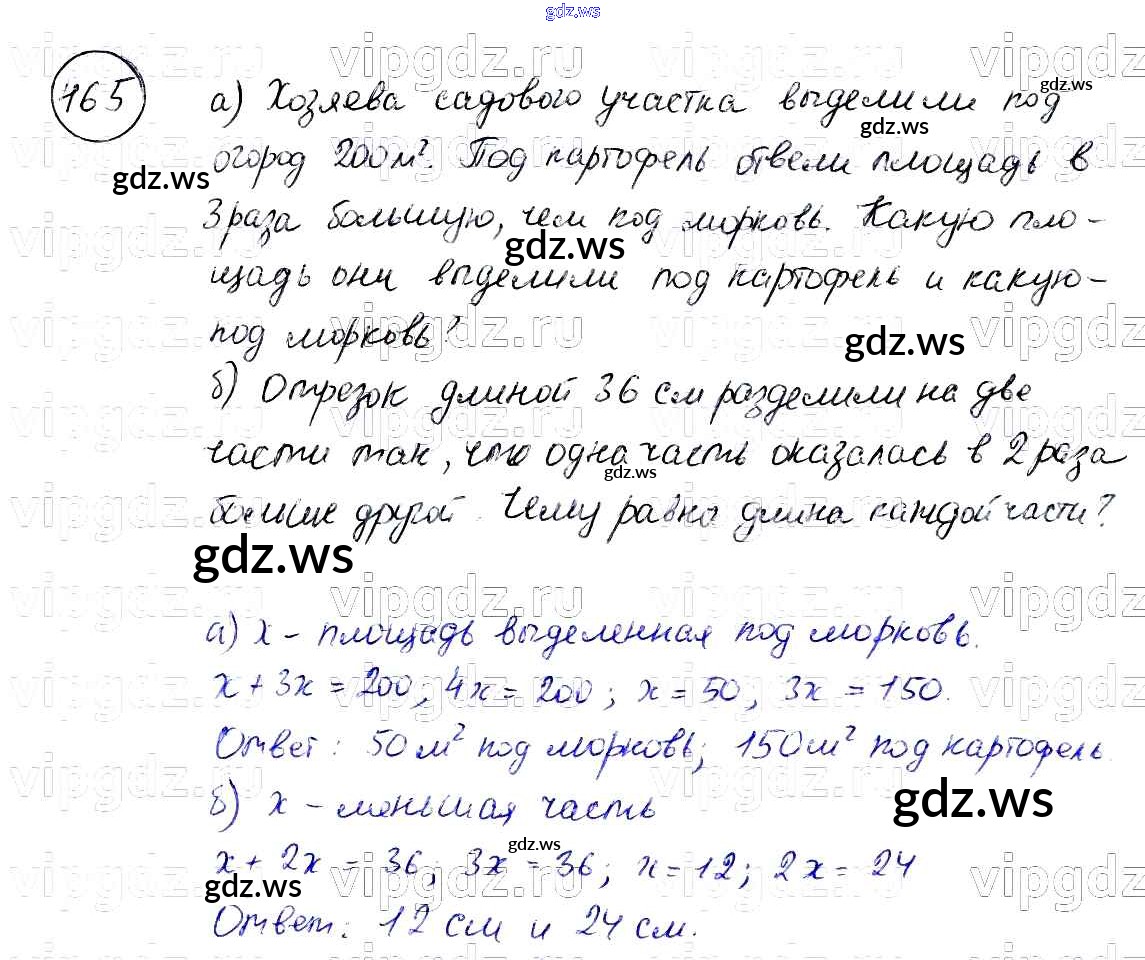 gdz.ws
165
а) Хозяева садового участка выделили под
огород 200 м². Под картофель отвели площадь в
3 раза большую, чем под морковь. Какую пло-
щадь они выделили под картофель и какую -
под морковь?
б) Отрезок длиной 36 см разделили на две
части так, что одна часть оказалась в 2 раза
больше другой. Чему равна длина каждой части?
а) x – площадь выделенная под морковь.
x + 3x = 200; 4x = 200; x = 50; 3x = 150.
Ответ: 50 м² под морковь; 150 м² под картофель.
б) x – меньшая часть
x + 2x = 36; 3x = 36; x = 12; 2x = 24
Ответ: 12 см и 24 см.